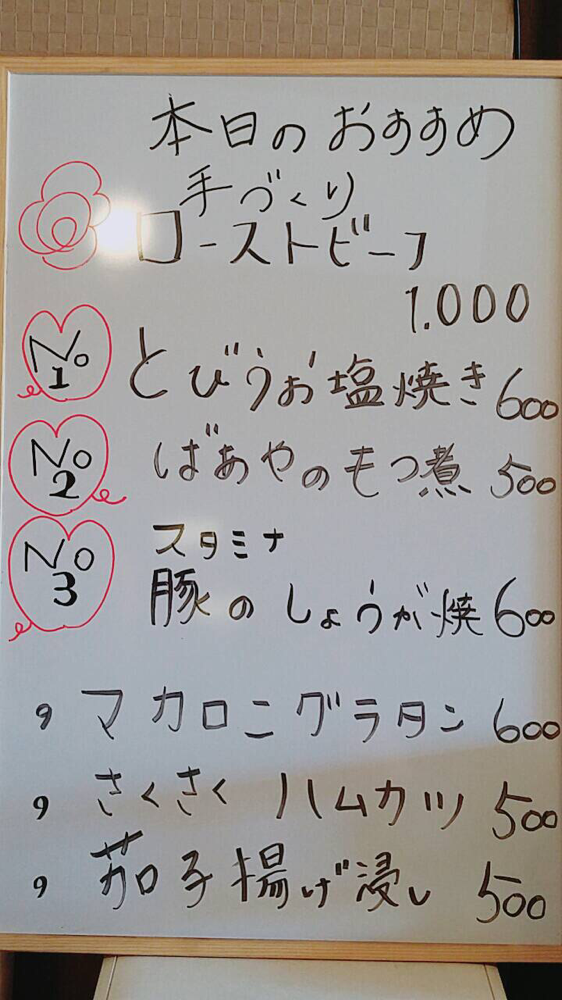 本日のおすすめ
手づくり
ローストビーフ
1.000
No 1 とびうお塩焼き 600
No 2 ばあやのもつ煮 500
No 3 スタミナ
豚のしょうが焼 600
, マカロニグラタン 600
, さくさくハムカツ 500
, 茄子揚げ浸し 500